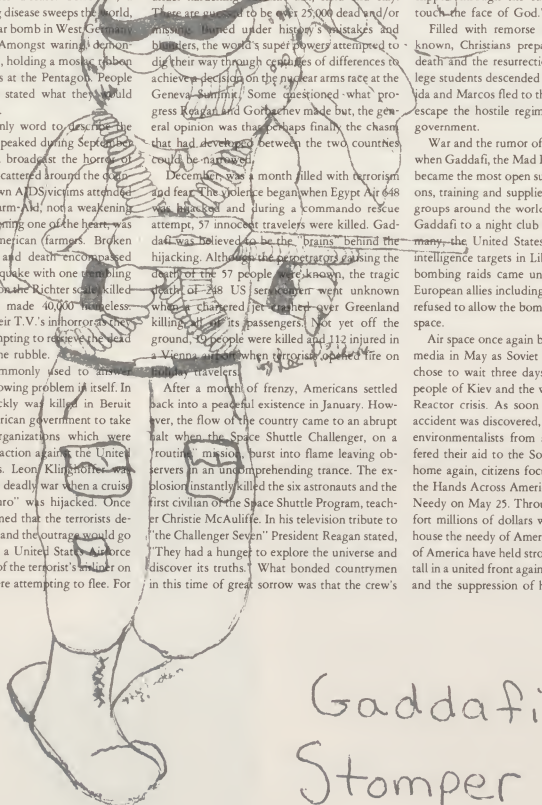 disease sweeps the world,
ar bomb in West Germany
Amongst warring demon-
, holding a mostly ribbon
s at the Pentagon. People
stated what they would
nly word to describe the
peaked during September
broadcast the horror of
cattered around the
wn AIDS victims attended
arm-Aid, not a weakening
ning one of the heart, was
merican farmers. Broken
and death encompassed
quake with one trembling
on the Richter scale killed
made 40,000 homeless.
eir T.V.'s in horror as they
mpting to retrieve the dead
he rubble.
mmonly used to answer
owing problem in itself. In
ckly was killed in Beruit
rican government to take
rganizations which were
action against the United
s. Leon Klinghoffer was
deadly war when a cruise
uro" was hijacked. Once
ned that the terrorists de-
and the outrage would go
a United States Airforce
of the terrorist's airliner on
re attempting to flee. For
There are guessed to be over 25,000 dead and/or
missing. Buried under history's mistakes and
blunders, the world's super powers attempted to
dig their way through centuries of differences to
achieve a decision on the nuclear arms race at the
Geneva Summit. Some questioned what pro-
gress Reagan and Gorbachev made but, the gen-
eral opinion was that perhaps finally the chasm
that had developed between the two countries
could be narrowed.
December, was a month filled with terrorism
and fear. The violence began when Egypt Air 648
was hijacked and during a commando rescue
attempt, 57 innocent travelers were killed. Gad-
dafi was believed to be the "brains" behind the
hijacking. Although the perpetrators causing the
death of the 57 people were known, the tragic
death of 248 US servicemen went unknown
when a chartered jet crashed over Greenland
killing all of its passengers. Not yet off the
ground, 19 people were killed and 112 injured in
a Vienna airport when terrorists opened fire on
holiday travelers.
After a month of frenzy, Americans settled
back into a peaceful existence in January. How-
ever, the flow of the country came to an abrupt
halt when the Space Shuttle Challenger, on a
"routine" mission, burst into flame leaving ob-
servers in an uncomprehending trance. The ex-
plosion instantly killed the six astronauts and the
first civilian of the Space Shuttle Program, teach-
er Christie McAuliffe. In his television tribute to
"the Challenger Seven" President Reagan stated,
"They had a hunger to explore the universe and
discover its truths." What bonded countrymen
in this time of great sorrow was that the crew's
touch the face of God.
Filled with remorse
known, Christians prepa
death and the resurrecti
lege students descended
ida and Marcos fled to th
escape the hostile regim
government.
War and the rumor of
when Gaddafi, the Mad
became the most open su
ons, training and supplie
groups around the world
Gaddafi to a night club
many, the United States
intelligence targets in Lil
bombing raids came un
European allies including
refused to allow the bom
space.
Air space once again b
media in May as Soviet
chose to wait three days
people of Kiev and the v
Reactor crisis. As soon
accident was discovered,
environmentalists from
fered their aid to the So
home again, citizens focu
the Hands Across Ameri
Needy on May 25. Throu
fort millions of dollars w
house the needy of Amer
of America have held stro
tall in a united front again
and the suppression of h
Gaddafi
Stomper